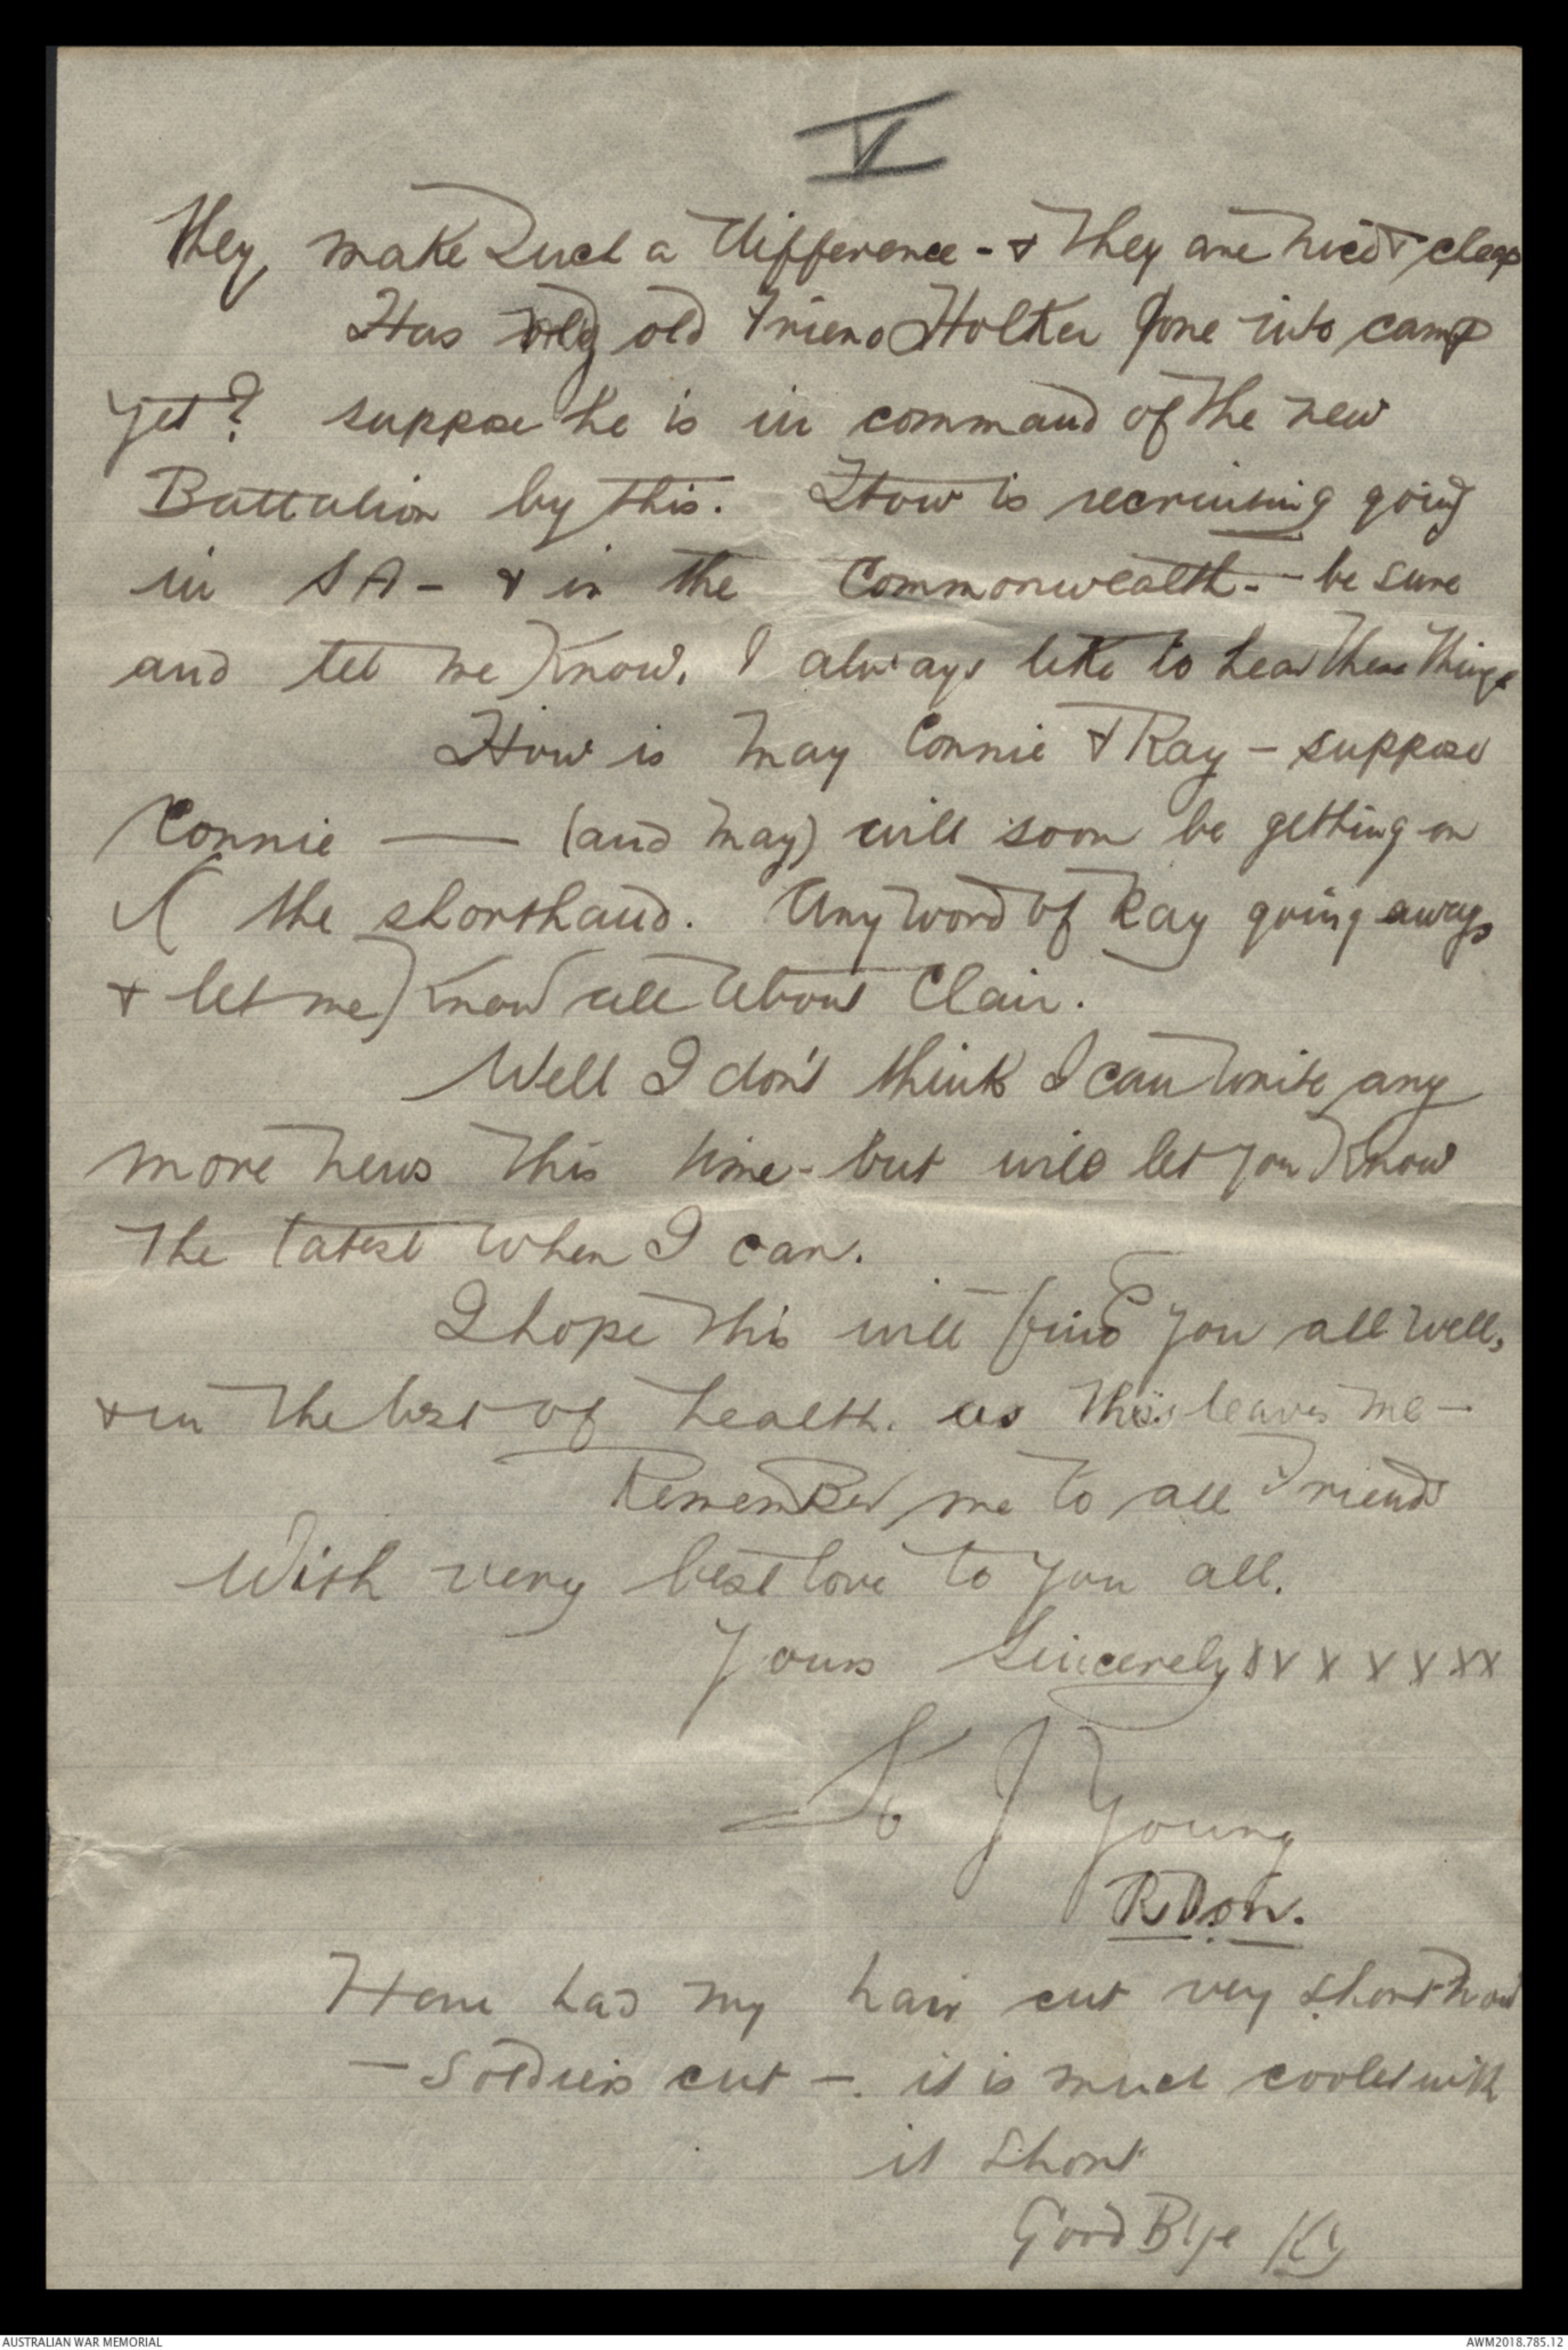 V
They make such a difference - & they are nice & cheap
Has my old friend Holker gone into camp
yet? suppose he is in command of the new
Battalion by this. How is recruiting going
in SA - & in the Commonwealth - be sure
and let me know. I always like to hear these things
How is May Connie & Ray - suppose
Connie — (and May) will soon be getting on
the shorthand. Any word of Ray going away,
& let me know all about Clair.
Well I don't think I can write any
more news this time - but will let you know
the latest when I can.
I hope this will find you all well,
& in the best of health. as this leaves me -
Remember me to all Friends
With very best love to you all.
Yours Sincerely xx x x x xx
J Young
Have had my hair cut very short now
- Soldiers cut -. it is much cooler with
it short
Good Bye Ky
AUSTRALIAN WAR MEMORIAL
AWM2018.785.12